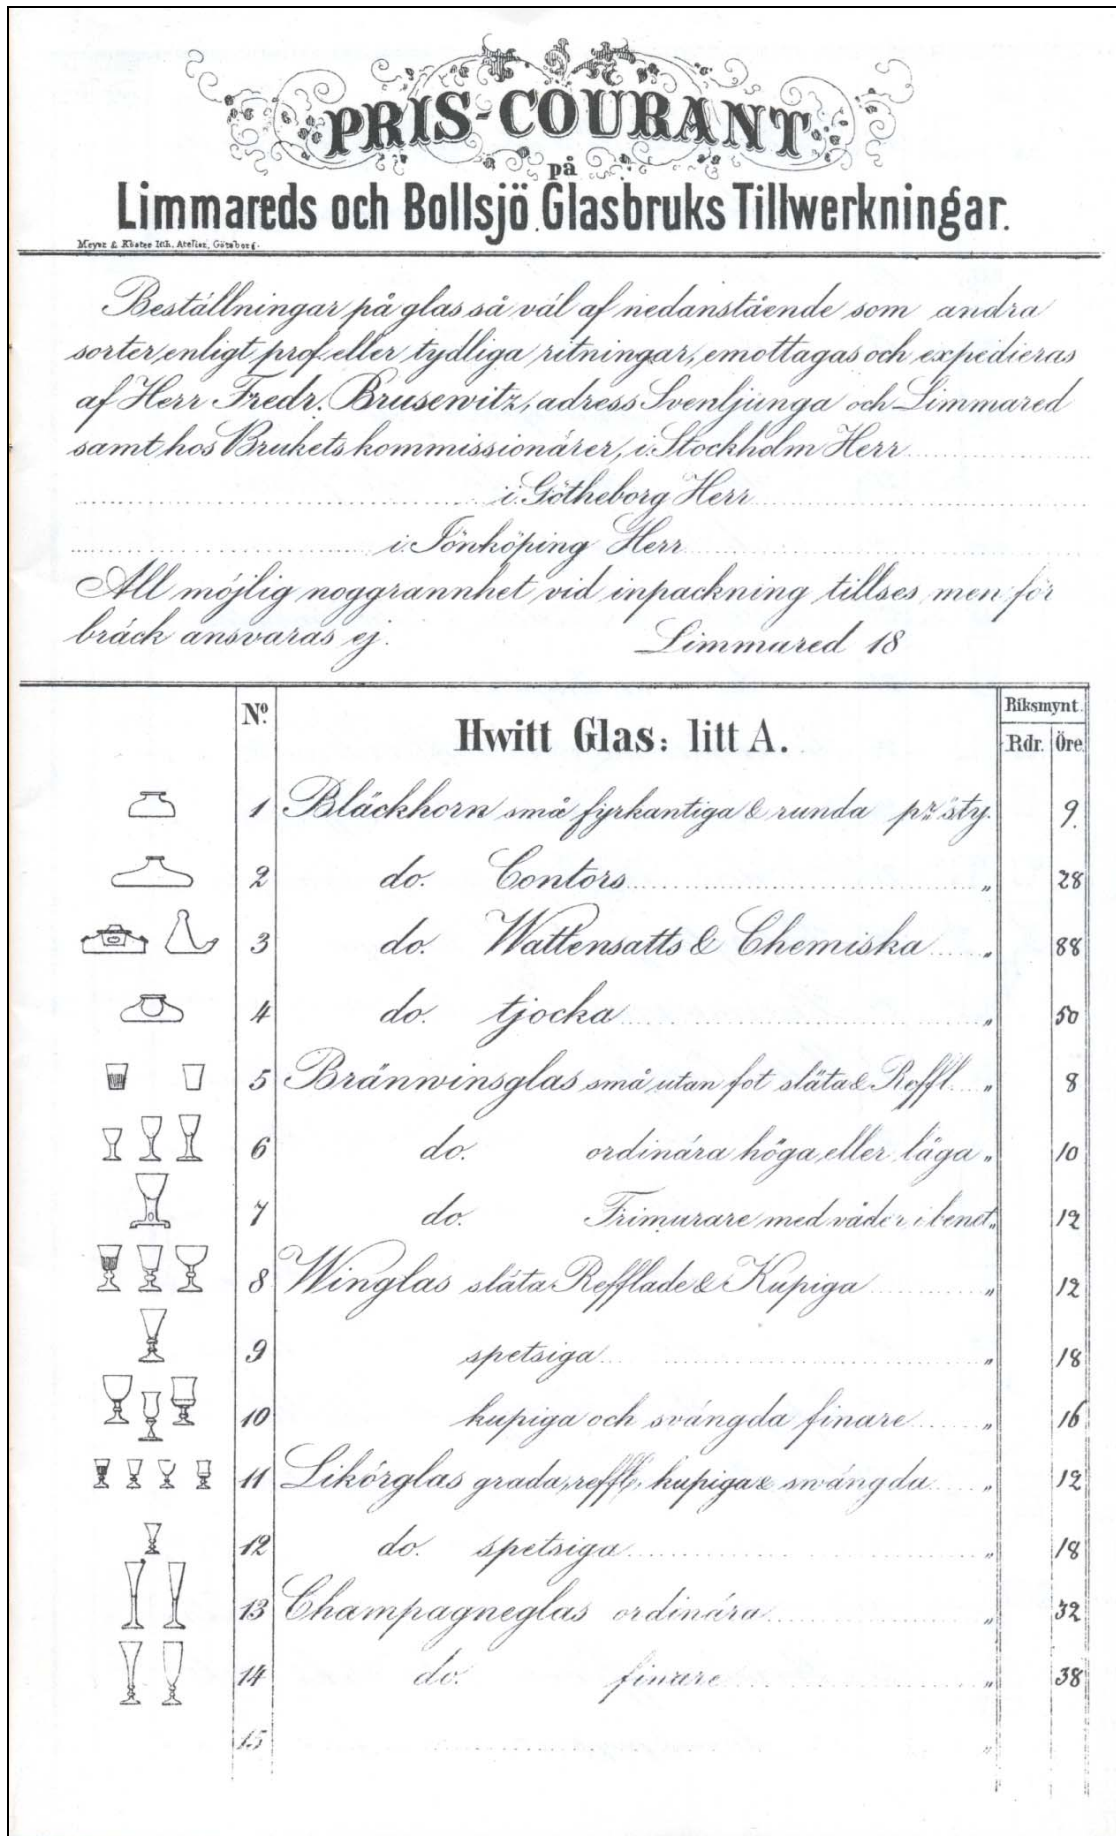 PRIS-COURANT
på
Limmareds och Bollsjö Glasbruks Tillwerkningar.
Meyer & Köster lith. Atelier, Göteborg.
Beställningar på glas så väl af nedanstående som andra
sorter, enligt prof eller tydliga ritningar, emottagas och expedieras
af Herr Fredr. Brusewitz, adress Svenljunga och Limmared
samt hos Brukets kommissionärer, i Stockholm Herr
i Götheborg Herr
i Jönköping Herr
All möjlig noggrannhet vid inpackning tillses men för
bräck ansvaras ej. Limmared 18
No. Hwitt Glas: litt A. Riksmynt.
Rdr. Öre.
1 Bläckhorn små fyrkantiga & runda pr sty. 9.
2 do. Contors " 28
3 do. Wattensatts & Chemiska " 88
4 do. tjocka " 50
5 Bränwinsglas små utan fot släta & Reffl. " 8
6 do. ordinära höga eller låga " 10
7 do. Frimurare med väder i benet " 12
8 Winglas släta Refflade & Kupiga " 12
9 spetsiga " 18
10 kupiga och svängda finare " 16
11 Likörglas grada, reffl, kupiga & swängda " 12
12 do. spetsiga " 18
13 Champagneglas ordinära " 32
14 do. finare " 38
15 "